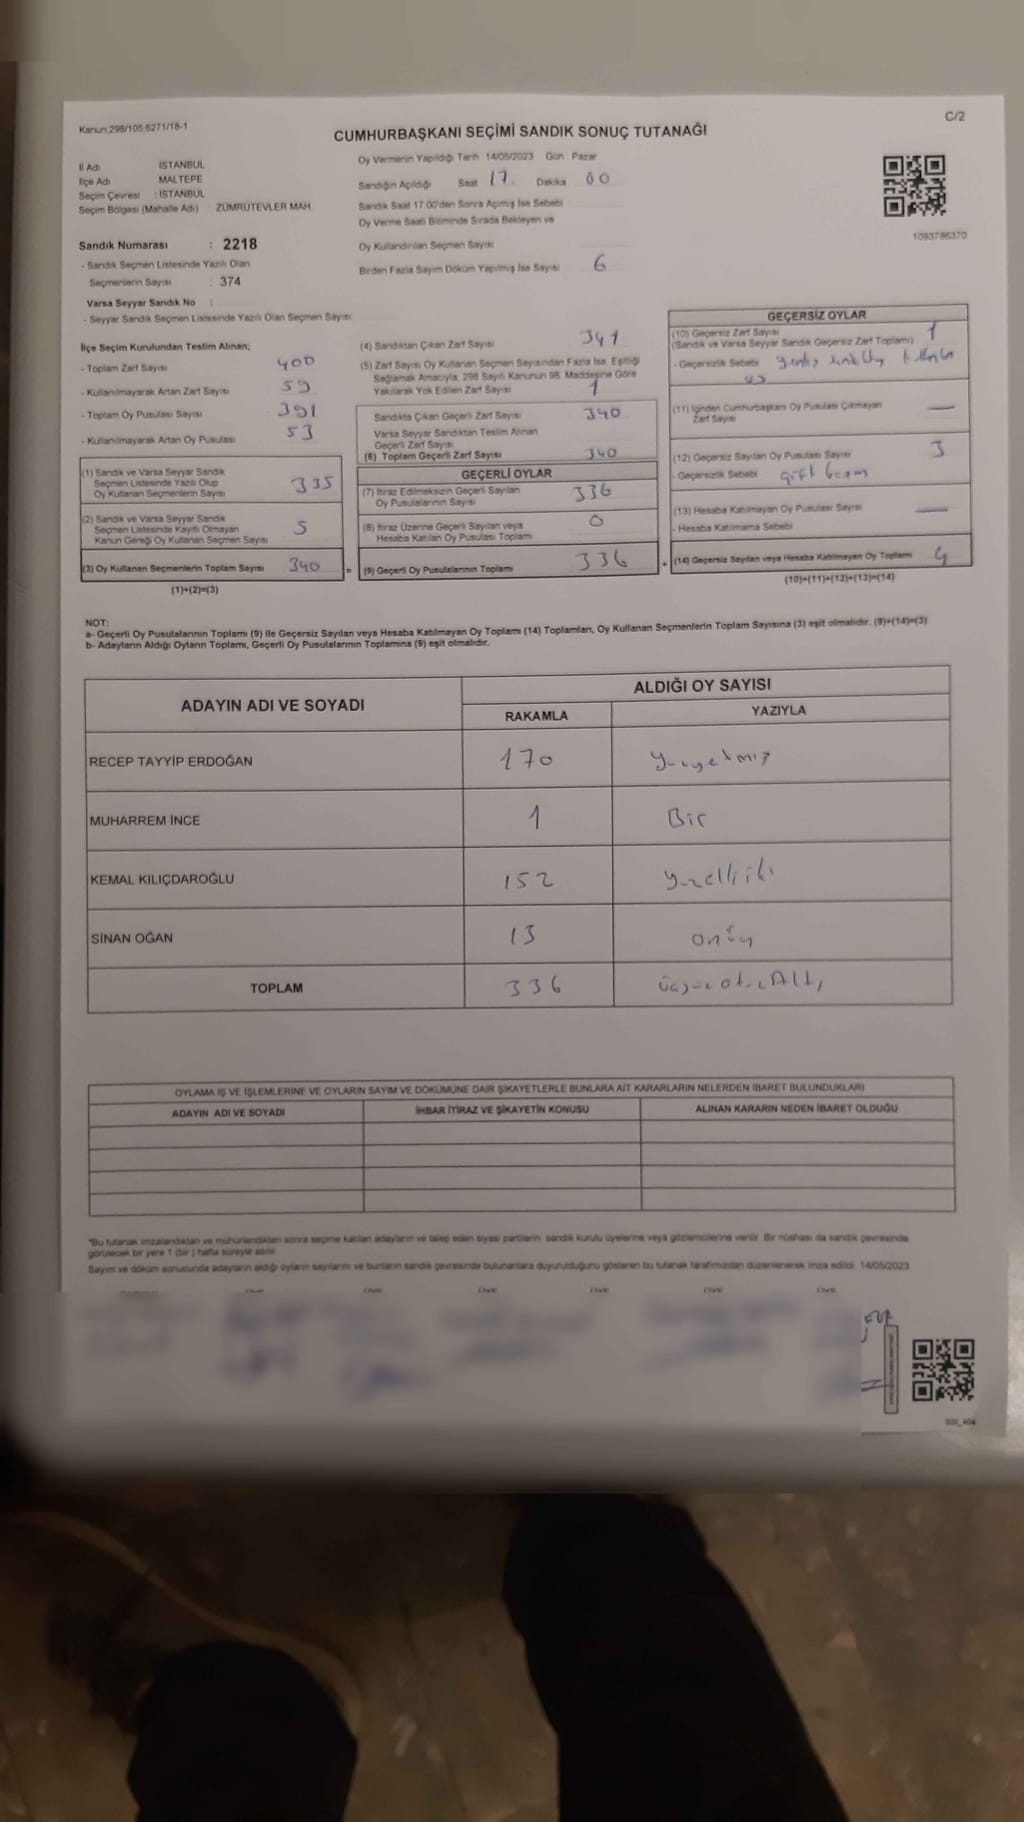 Kanun:298/105,6271/18-1
C/2
CUMHURBAŞKANI SEÇİMİ SANDIK SONUÇ TUTANAĞI
İl Adı İSTANBUL
İlçe Adı MALTEPE
Seçim Çevresi : İSTANBUL
Seçim Bölgesi (Mahalle Adı) ZÜMRÜTEVLER MAH.
Sandık Numarası : 2218
- Sandık Seçmen Listesinde Yazılı Olan
Seçmenlerin Sayısı : 374
Varsa Seyyar Sandık No :
- Seyyar Sandık Seçmen Listesinde Yazılı Olan Seçmen Sayısı
Oy Vermenin Yapıldığı Tarih 14/05/2023 Gün Pazar
Sandığın Açıldığı Saat 17. Dakika 00
Sandık Saat 17.00'den Sonra Açılmış İse Sebebi
Oy Verme Saati Bitiminde Sırada Bekleyen ve
Oy Kullandırılan Seçmen Sayısı
Birden Fazla Sayım Döküm Yapılmış İse Sayısı 6
1093796370
İlçe Seçim Kurulundan Teslim Alınan;
- Toplam Zarf Sayısı 400
- Kullanılmayarak Artan Zarf Sayısı 59
- Toplam Oy Pusulası Sayısı 391
- Kullanılmayarak Artan Oy Pusulası 53
(1) Sandık ve Varsa Seyyar Sandık
Seçmen Listesinde Yazılı Olup
Oy Kullanan Seçmenlerin Sayısı 335
(2) Sandık ve Varsa Seyyar Sandık
Seçmen Listesinde Kayıtlı Olmayan
Kanun Gereği Oy Kullanan Seçmen Sayısı 5
(3) Oy Kullanan Seçmenlerin Toplam Sayısı 340
(1)+(2)=(3)
(4) Sandıktan Çıkan Zarf Sayısı 341
(5) Zarf Sayısı Oy Kullanan Seçmen Sayısından Fazla İse, Eşitliği
Sağlamak Amacıyla, 298 Sayılı Kanunun 98. Maddesine Göre
Yakılarak Yok Edilen Zarf Sayısı 1
Sandıkta Çıkan Geçerli Zarf Sayısı 340
Varsa Seyyar Sandıktan Teslim Alınan
Geçerli Zarf Sayısı
(6) Toplam Geçerli Zarf Sayısı 340
GEÇERLİ OYLAR
(7) İtiraz Edilmeksizin Geçerli Sayılan
Oy Pusulalarının Sayısı 336
(8) İtiraz Üzerine Geçerli Sayılan veya
Hesaba Katılan Oy Pusulası Toplamı 0
= (9) Geçerli Oy Pusulalarının Toplamı 336
GEÇERSİZ OYLAR
(10) Geçersiz Zarf Sayısı 1
(Sandık ve Varsa Seyyar Sandık Geçersiz Zarf Toplamı)
- Geçersizlik Sebebi
(11) İçinden Cumhurbaşkanı Oy Pusulası Çıkmayan
Zarf Sayısı —
(12) Geçersiz Sayılan Oy Pusulası Sayısı 3
- Geçersizlik Sebebi çift basım
(13) Hesaba Katılmayan Oy Pusulası Sayısı —
- Hesaba Katılmama Sebebi
+ (14) Geçersiz Sayılan veya Hesaba Katılmayan Oy Toplamı 4
(10)+(11)+(12)+(13)=(14)
NOT:
a- Geçerli Oy Pusulalarının Toplamı (9) ile Geçersiz Sayılan veya Hesaba Katılmayan Oy Toplamı (14) Toplamları, Oy Kullanan Seçmenlerin Toplam Sayısına (3) eşit olmalıdır. (9)+(14)=(3)
b- Adayların Aldığı Oyların Toplamı, Geçerli Oy Pusulalarının Toplamına (9) eşit olmalıdır.
ADAYIN ADI VE SOYADI ALDIĞI OY SAYISI
RAKAMLA YAZIYLA
RECEP TAYYİP ERDOĞAN 170 Yüzyetmiş
MUHARREM İNCE 1 Bir
KEMAL KILIÇDAROĞLU 152 Yüzelliiki
SİNAN OĞAN 13 onüç
TOPLAM 336 üçyüzotuzAltı
OYLAMA İŞ VE İŞLEMLERİNE VE OYLARIN SAYIM VE DÖKÜMÜNE DAİR ŞİKAYETLERLE BUNLARA AİT KARARLARIN NELERDEN İBARET BULUNDUKLARI
ADAYIN ADI VE SOYADI İHBAR İTİRAZ VE ŞİKAYETİN KONUSU ALINAN KARARIN NEDEN İBARET OLDUĞU
*Bu tutanak imzalandıktan ve mühürlendikten sonra seçime katılan adayların ve talep eden siyasi partilerin, sandık kurulu üyelerine veya gözlemcilerine verilir. Bir nüshası da sandık çevresinde
görülecek bir yere 1 (bir) hafta süreyle asılır.
Sayım ve döküm sonucunda adayların aldığı oyların sayılarını ve bunların sandık çevresinde bulunanlara duyurulduğunu gösteren bu tutanak tarafımızdan düzenlenerek imza edildi. 14/05/2023